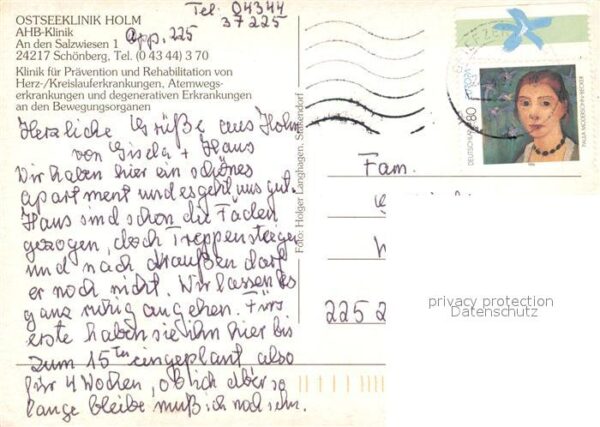 OSTSEEKLINIK HOLM
AHB-Klinik
An den Salzwiesen 1
24217 Schönberg, Tel. (0 43 44) 3 70
Tel. 04344
37225
App. 225
Klinik für Prävention und Rehabilitation von
Herz-/Kreislauferkrankungen, Atemwegs-
erkrankungen und degenerativen Erkrankungen
an den Bewegungsorganen
Herzliche Grüße aus Holm
von Gisela + Hans
Wir haben hier ein schönes
Apartment und es geht uns gut.
Hans sind schon die Fäden
gezogen, doch Treppensteigen
und nach draußen darf
er noch nicht. Wir lassen es
ganz ruhig angehen. Fürs
erste haben sie ihn hier bis
zum 15ten eingeplant also
für 4 Wochen, ob ich aber so
lange bleibe muß ich mal sehn.
Foto: Holger Langhagen, Stakendorf
EUROPA
DEUTSCHLAND
80
PAULA MODERSOHN-BECKER
1996
Fam.
2252
privacy protection
Datenschutz